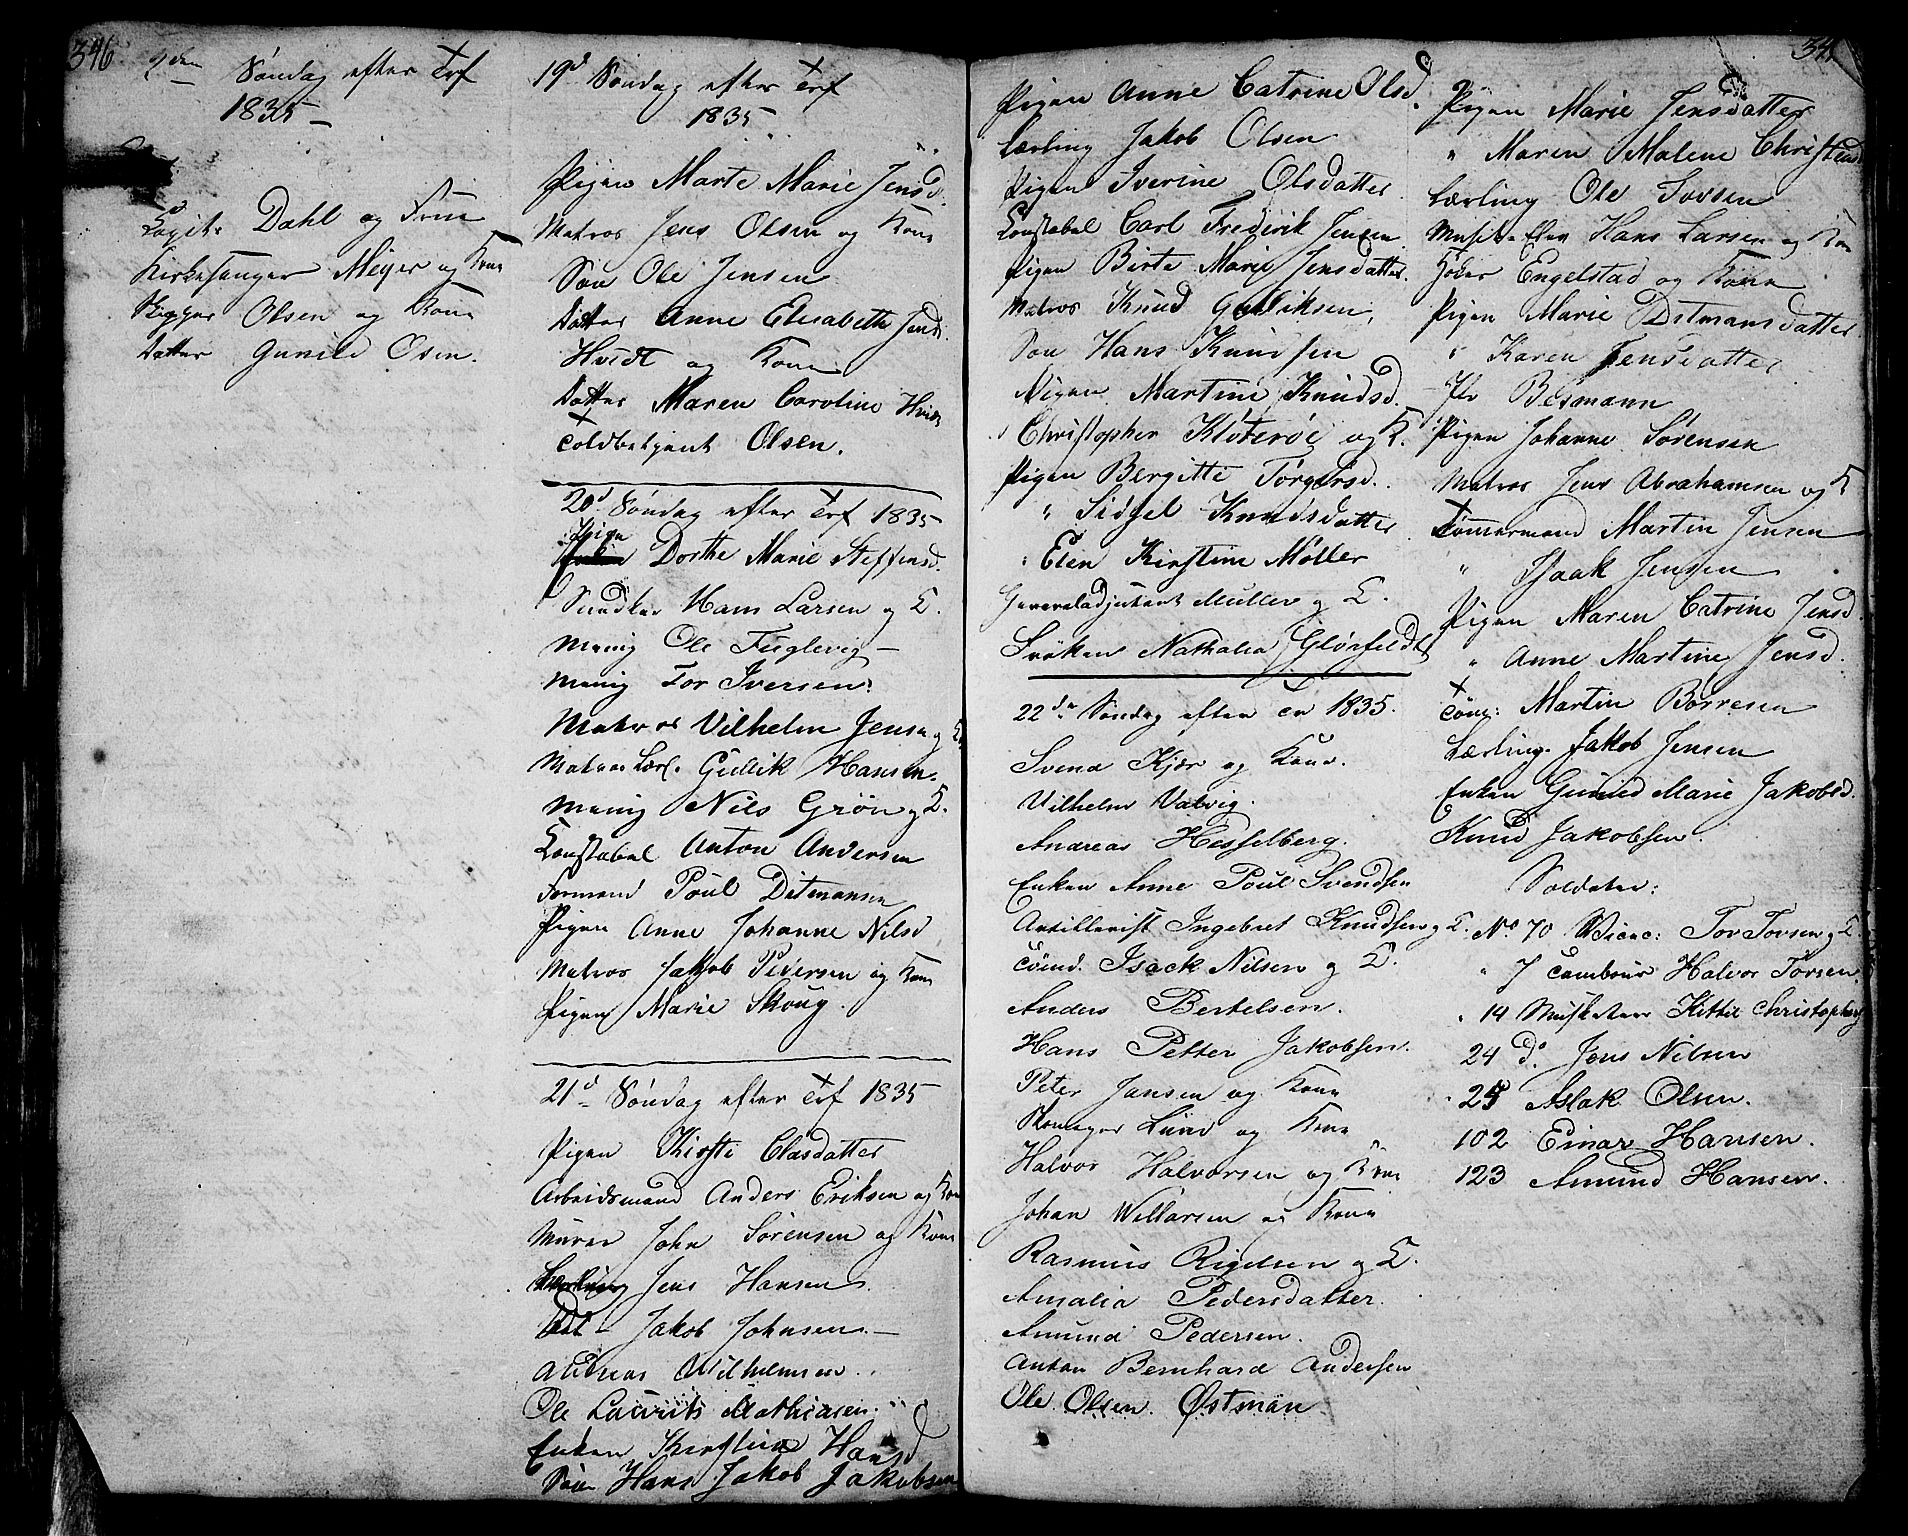 346
2den Søndag efter Trf
1835
Capit: Dahl og Frue
Kirkesanger Meyer og Kone
Skipper Olsen og Kone
Datter Gunild Osen.
19d Søndag efter Trf
1835
Pigen Marte Marie Jensd.
Matros Jens Olsen og Kone
Søn Ole Jensen
Datter Anne Elisabeth Jensd.
Hvidt og Kone
Datter Maren Caroline Hvidt
Toldbetjent Olsen.
20d Søndag efter Trf 1835
Pigen
Dorthe Marie Steffensd.
Snedker Hans Larsen og K.
Menig Ole Fuglevig
Menig Tor Iversen
Matros Vilhelm Jensen og K.
Matros Lærl. Gullik Hansen
Menig Nils Grøn og K.
Constabel Anton Andersen
Formand Poul Ditmansen
Pigen Anne Johanne Nilsd
Matros Jakob Pedersen og Kone
Pigen Marie Skoug.
21d Søndag efter Trf 1835
Pigen Kirsti Clasdatter
Arbeidsmand Anders Eriksen og Kone
Murer John Sørensen og Kone
Lærling Jens Hansen
Jakob Johnsen
Andreas Wilhelmsen
Ole Laurits Mathiasen
Enken Kirstine Hansd
Søn Hans Jakob Jakobsen
347
Pigen Anne Catrine Olsd.
Lærling Jakob Olsen
Pigen Iverine Olsdatter
Constabel Carl Frederik Jensen
Pigen Birte Marie Jensdatter
Matros Knud Gulliksen,
Søn Hans Knudsen
Pigen Martine Knudsd.
Christopher Kloterøe og K.
Pigen Bergitte Torgersd.
" Sidsel Knudsdatter
" Elen Kirstine Møller
Generaladjutant Müller og K.
Frøken Nathalia Glørfeldt
22de Søndag efter Tr 1835.
Svend Kjær og Kone.
Vilhelm Valvig.
Andreas Hesselberg.
Enken Anne Poul Svendsen
Artillerist Ingebret Knudsen og K.
Tømd. Isack Nilsen og K.
Anders Bertelsen.
Hans Petter Jakobsen.
Peter Jansen og Kone
Skomager Lund og Kone
Halvor Halvorsen og Kone
Johan Willarsen og Kone
Rasmus Rigelsen og K.
Amalia Pedersdatter.
Amund Pedersen.
Anton Bernhard Andersen
Ole Olsen Østman
Pigen Marie Jensdatter
" Maren Malene Christensd
Lærling Ole Torsen
Musik-Elev Hans Larsen og Kone
Engelstad og Kone
Pigen Marie Ditmansdatter
" Karen Jensdatter
Bergmann
Pigen Johanne Sørensen
Matros Jens Abrahamsen og K
Tømmermand Martin Jensen
" Isaak Jensen
Pigen Maren Catrine Jensd.
" Anne Martine Jensd.
Tøm: Martin Børresen
Lærling. Jakob Jensen
Enken Gunild Marie Jakobsd.
Knud Jakobsen.
Soldater:
No 70 Tor Torsen og K.
" 7 Tambour Halvor Torsen
" 14 Musketeer Kittil Christophers
24 do Jens Nilsen
25 Aslak Olsen.
102 Einar Hansen.
123 Amund Hansen.